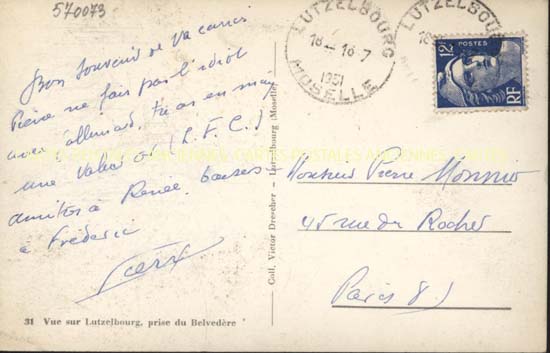 570073
Bon souvenir de vacances
Pierre ne fais pas l'idiot
avec allemand, tu as en main
une valeur or (R.F.C.)
amitiés à Renée, baisers
à Frédéric
LUTZELBOURG
18-16-7
1951
MOSELLE
LUTZELBOURG
18
12F
POSTES
RF
Monsieur Pierre Monnier
45 rue du Rocher
Paris 8)
Coll. Victor Drescher - Lutzelbourg (Moselle)
CARTES POSTALES ANCIENNES
31 Vue sur Lutzelbourg, prise du Belvedère